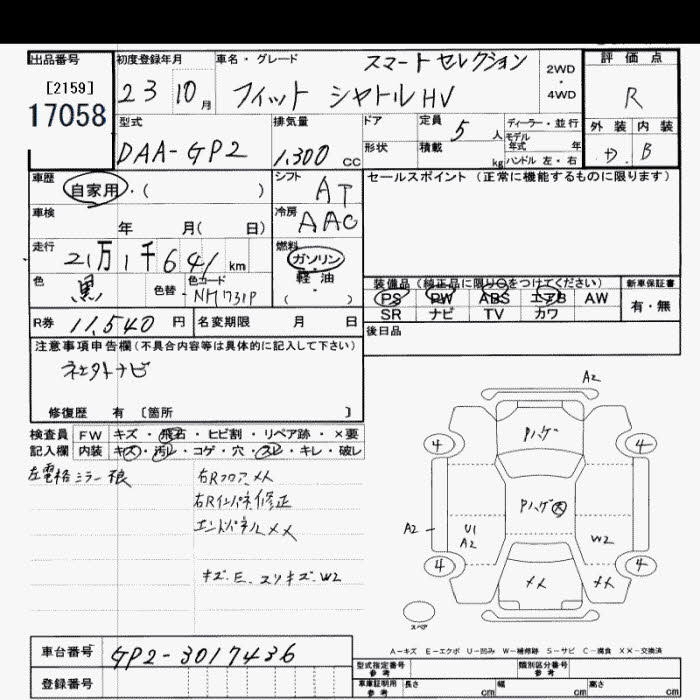 出品番号
[2159]
17058
初度登録年月
23 10月
車名・グレード
スマートセレクション
フィット シャトルHV
2WD
・
4WD
評価点
R
外装 内装
D. B
型式
DAA-GP2
排気量
1,300 cc
ドア
形状
定員 5 人
積載 kg
ディーラー・並行
モデル
年式 年
ハンドル 左・右
車歴
自家用・( )
シフト
AT
セールスポイント (正常に機能するものに限ります)
車検
年 月( 日)
冷房
AAC
走行
21万1千641 km
燃料
ガソリン
軽・油
( )
色
黒
色替
色コード
NH731P
装備品 (純正品に限り○をつけてください)
PS PW ABS エアB AW
SR ナビ TV カワ
新車保証書
有・無
R券 11,540 円
名変期限 月 日
後日品
注意事項申告欄 (不具合内容等は具体的に記入して下さい)
修復歴 有 [箇所 ]
検査員 FW キズ・飛石・ヒビ割・リペア跡・×要
記入欄 内装 キズ・汚レ・コゲ・穴・スレ・キレ・破レ
左電格ミラー
右Rフロア メメ
右Rインパネ修正
エンドパネルメメ
キズ.E.スリキズ.W2
A2
Pハゲ
4 4
Pハゲ大
A2
U1
A2
W2
4 4
メメ メメ
スペア
A-キズ E-エクボ U-凹み W-補修跡 S-サビ C-腐食 XX-交換済
車台番号 GP2-3017436
登録番号
型式指定番号
参考
類別区分番号
参考
車庫証明用
参考
長さ cm 幅 cm 高さ cm